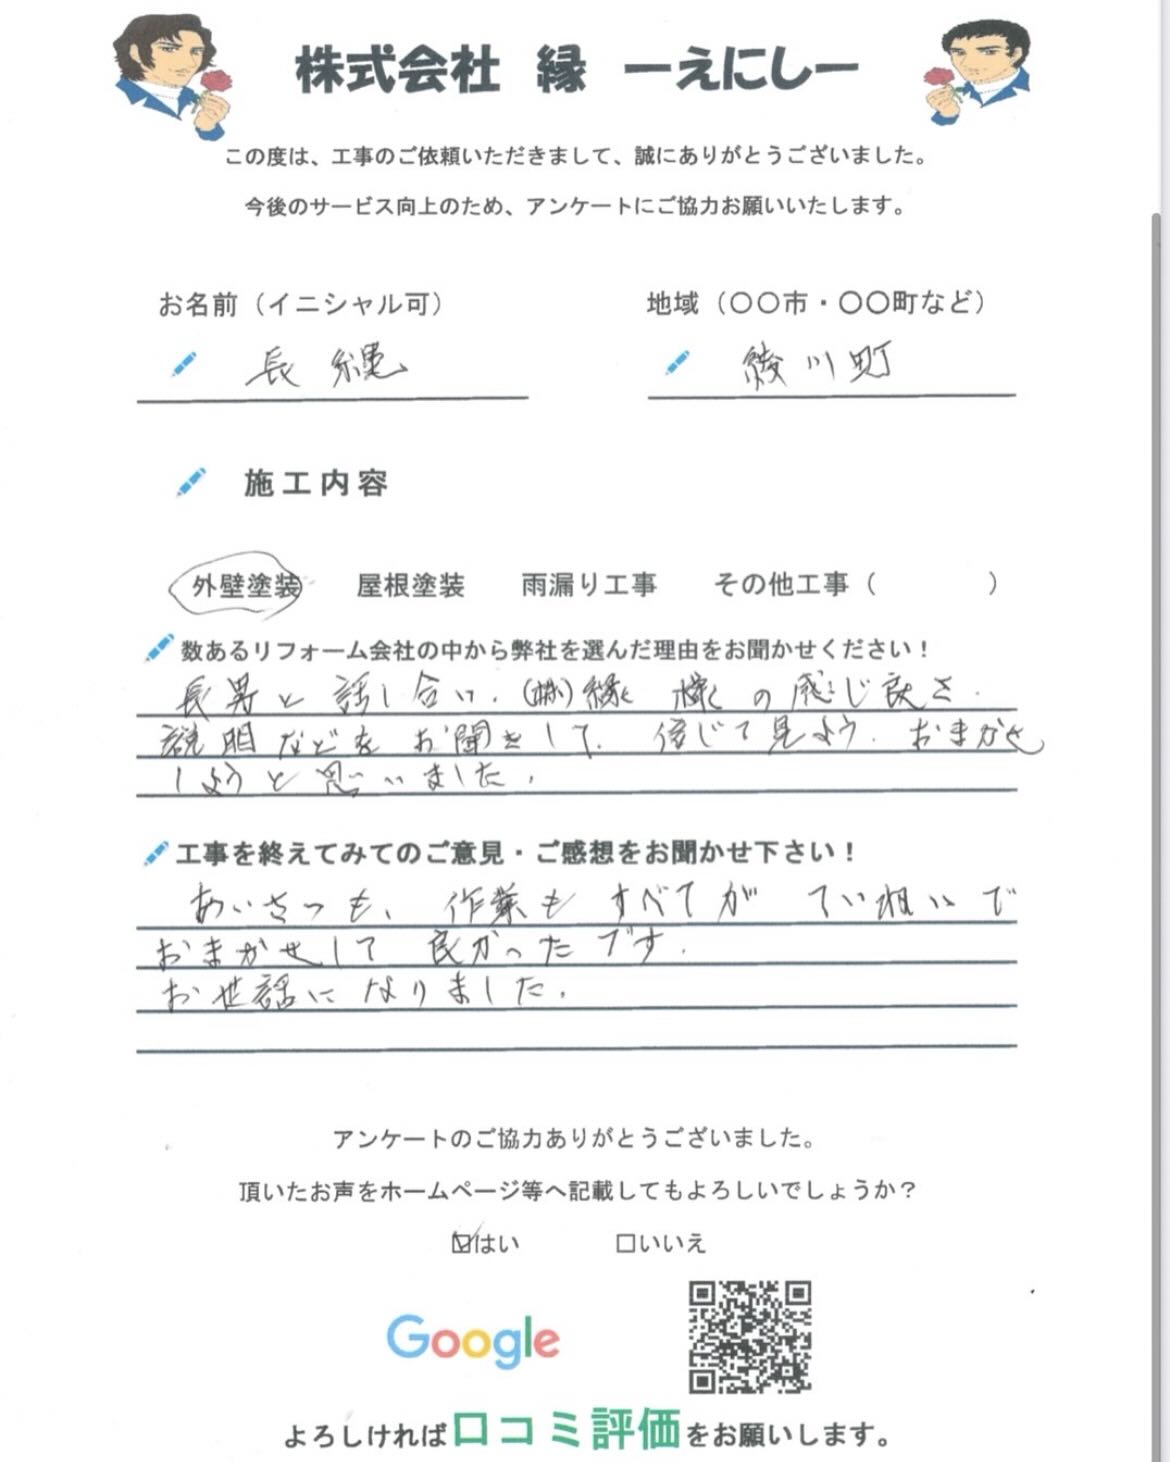 株式会社 縁 ーえにしー
この度は、工事のご依頼いただきまして、誠にありがとうございました。
今後のサービス向上のため、アンケートにご協力お願いいたします。
お名前（イニシャル可） 地域（〇〇市・〇〇町など）
長縄 綾川町
施工内容
外壁塗装 屋根塗装 雨漏り工事 その他工事（ ）
数あるリフォーム会社の中から弊社を選んだ理由をお聞かせください！
長男と話し合い、(株)縁 様の感じ良さ、
説明などをお聞きして、信じて見よう、おまかせ
しようと思いました。
工事を終えてみてのご意見・ご感想をお聞かせ下さい！
あいさつも、作業もすべてがていねいで
おまかせして良かったです。
お世話になりました。
アンケートのご協力ありがとうございました。
頂いたお声をホームページ等へ記載してもよろしいでしょうか？
☑はい □いいえ
Google
よろしければ口コミ評価をお願いします。